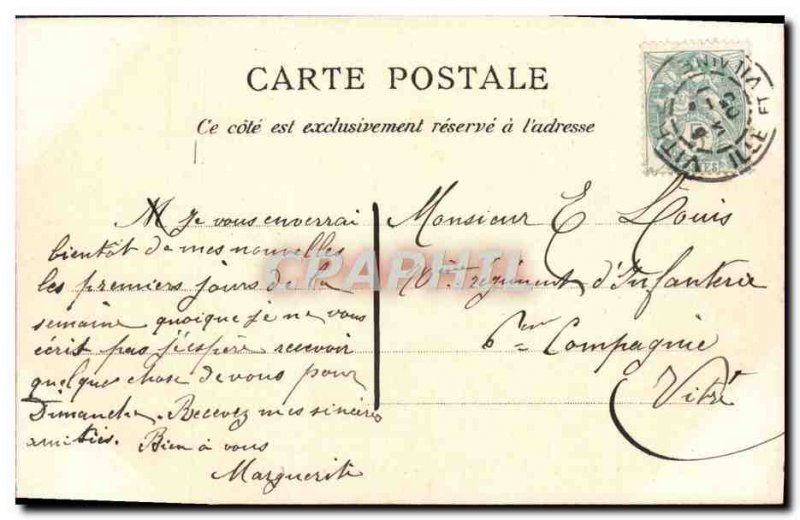 CARTE POSTALE
Ce côté est exclusivement réservé à l'adresse
VITRÉ ILLE ET VILAINE
Je vous enverrai
bientôt de mes nouvelles
les premiers jours de la
semaine quoique je ne vous
écrit pas j'éspère recevoir
quelques chose de vous pour
Dimanche. Recevez mes sincères
amitiés. Bien à vous
Marguerite
Monsieur E Louis
régiment d'Infanterie
6eme Compagnie
Vitré
CPAPHIL